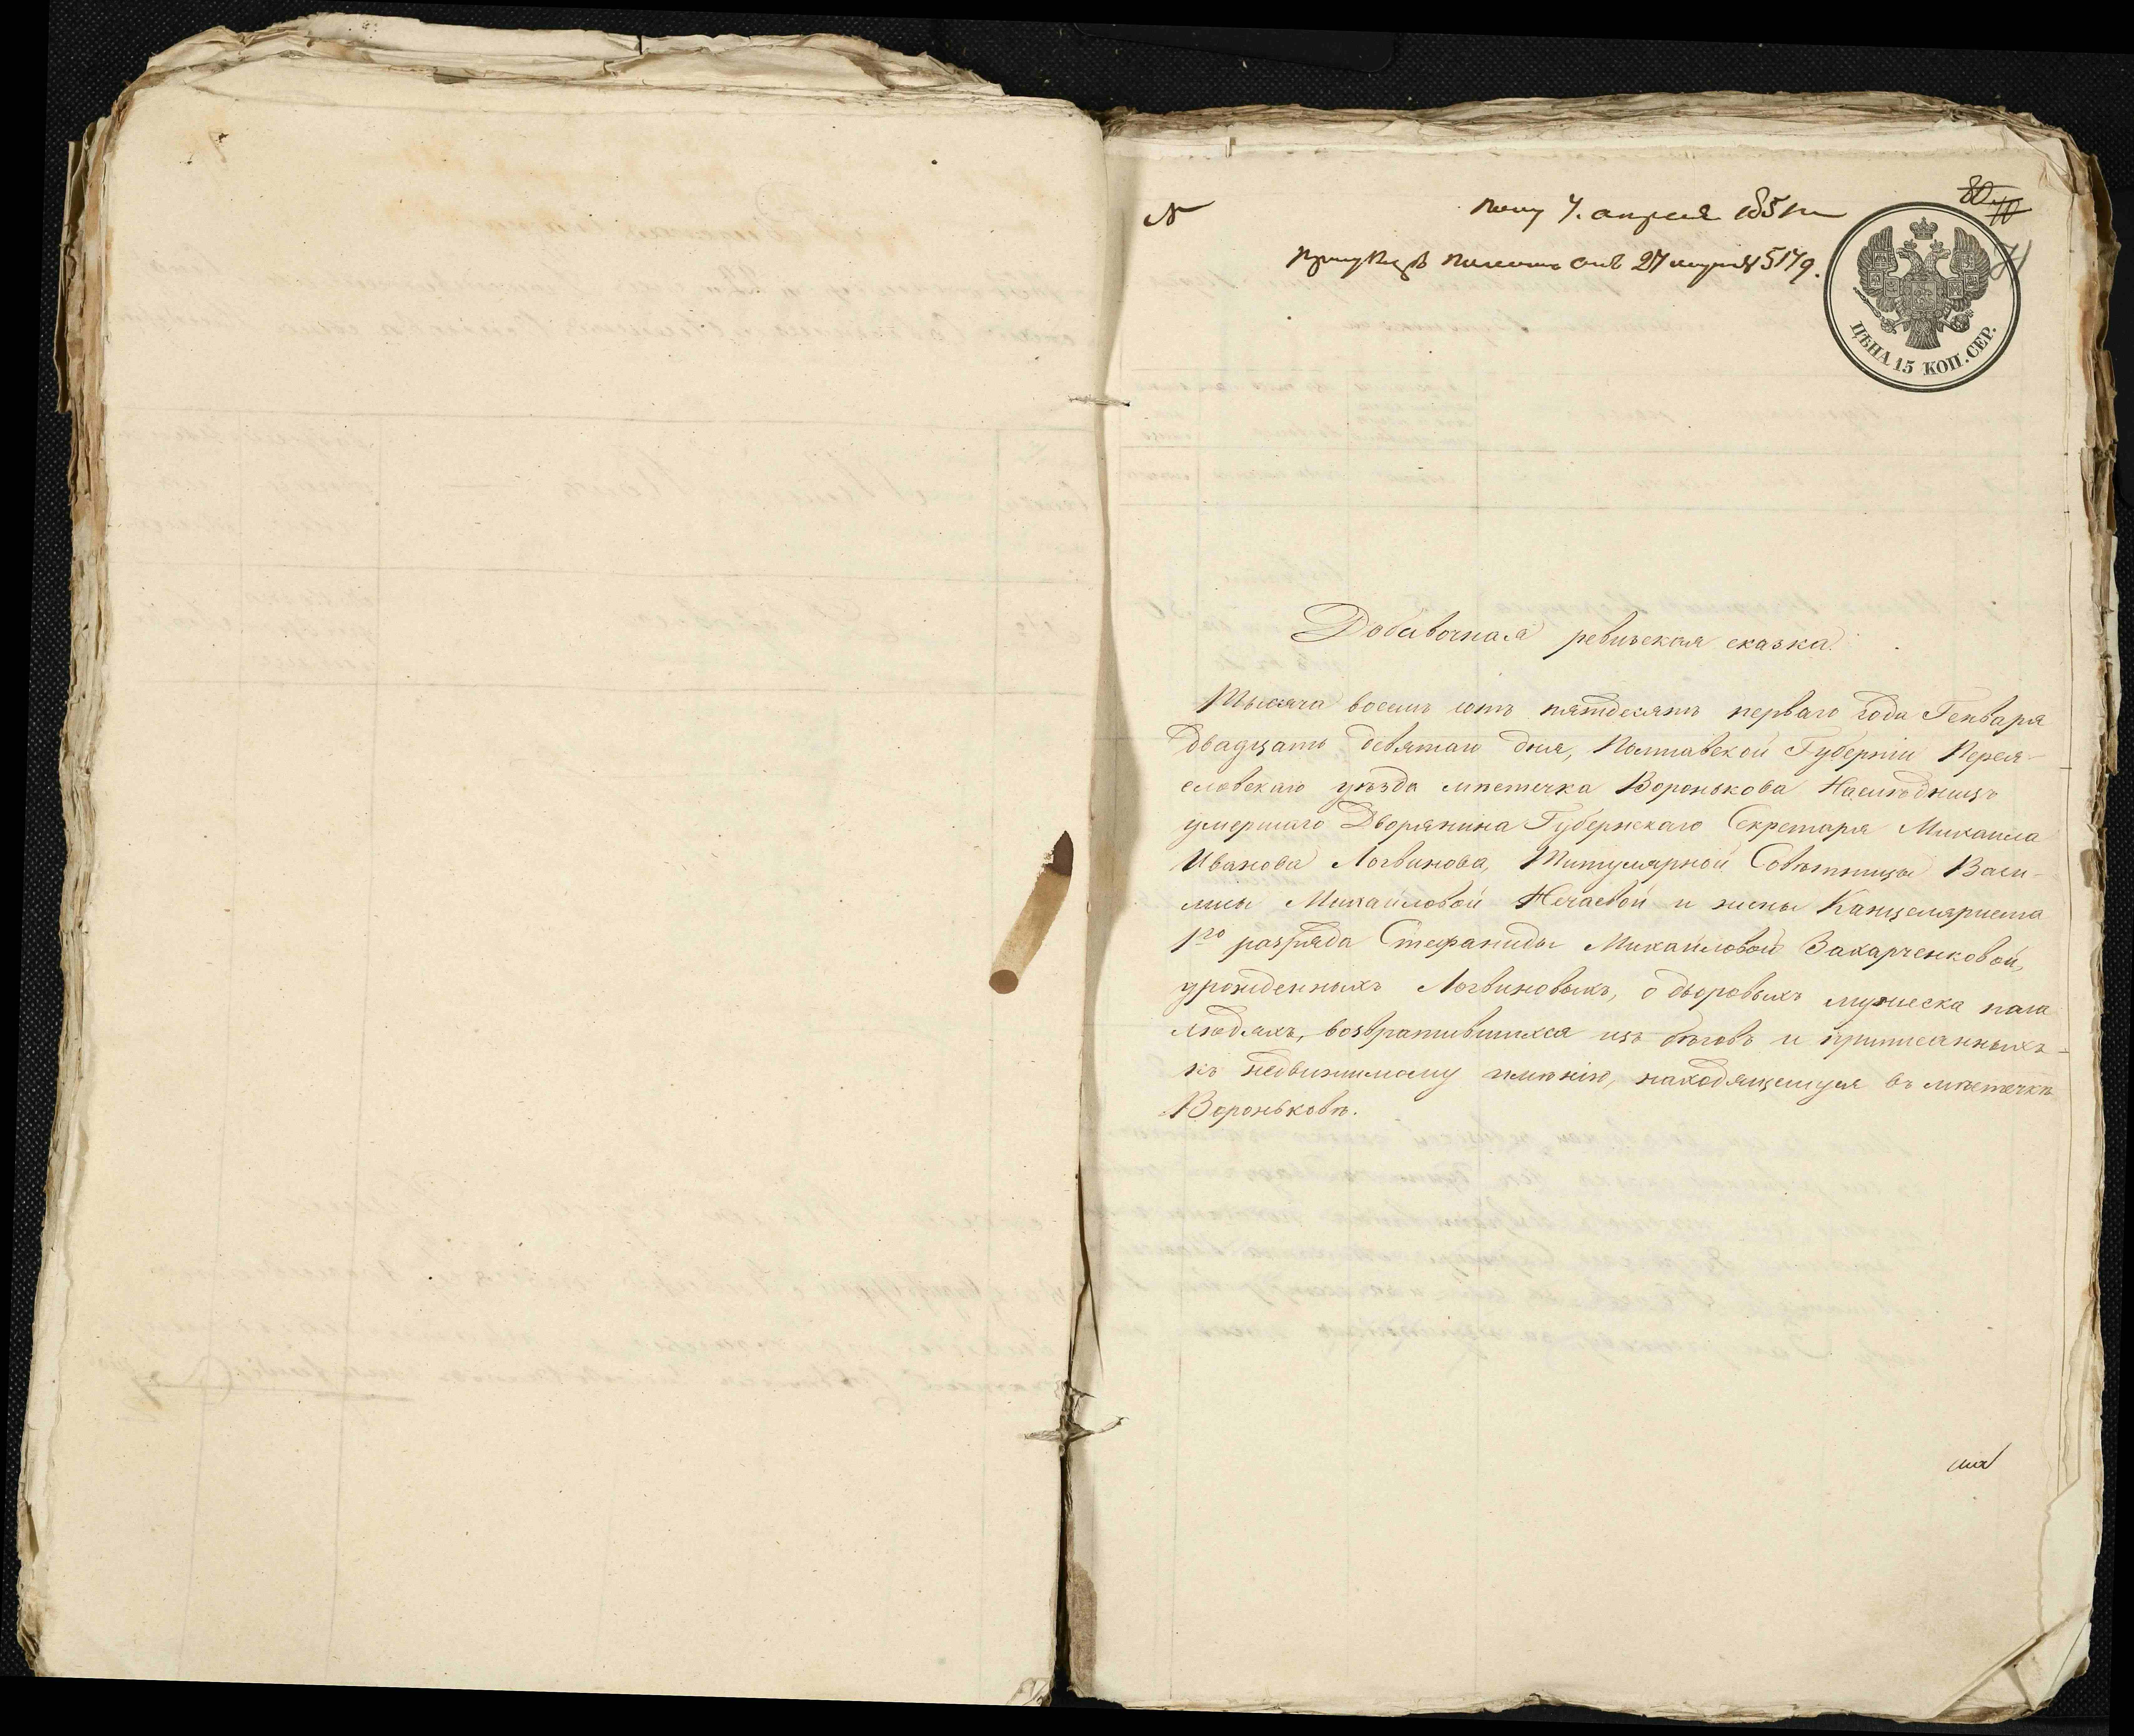 №
80
Получ 4. апреля 1851 г.
ЦѢНА 15 КОП. СЕР.
Добавочная ревизская сказка.
Тысяча восемь сотъ пятдесятъ перваго года Генваря
двадцать девятаго дня, Полтавской Губерніи Перея-
словскаго уѣзда мѣстечка Воронькова Наслѣдницъ
умершаго Дворянина Губернскаго Секретаря Михаила
Иванова Логвинова, Титулярной Совѣтницы Васи-
лисы Михайловой Нечаевой и жены Канцеляриста
1го разряда Стефаниды Михайловой Захарченковой,
урожденныхъ Логвиновыхъ, о дворовыхъ мужеска пола
людяхъ, возвратившихся изъ бѣговъ и приписанныхъ
къ недвижимому имѣнію, находящемуся въ мѣстечкѣ
Вороньковѣ.